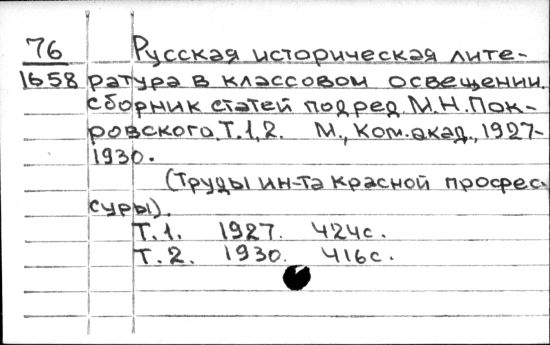 76 Русская историческая лите-
1658 ратура в классовом освещении.
сборник статей под ред. М.Н.Пок-
ровского. Т.1,2. М., Ком.акад., 1927-
1930.
(Труды ин-та красной профес-
суры).
Т.1. 1927. 424с.
Т.2. 1930. 416с.